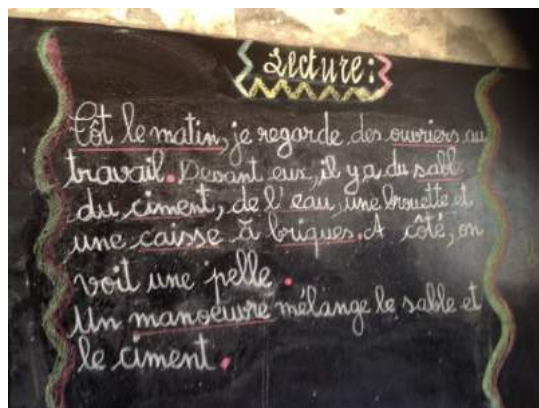 Lecture :
Tôt le matin, je regarde des ouvriers au
travail. Devant eux, il y a du sabl
du ciment, de l'eau, une brouette et
une caisse à briques. A côté, on
voit une pelle.
Un manoeuvre mélange le sable et
le ciment.